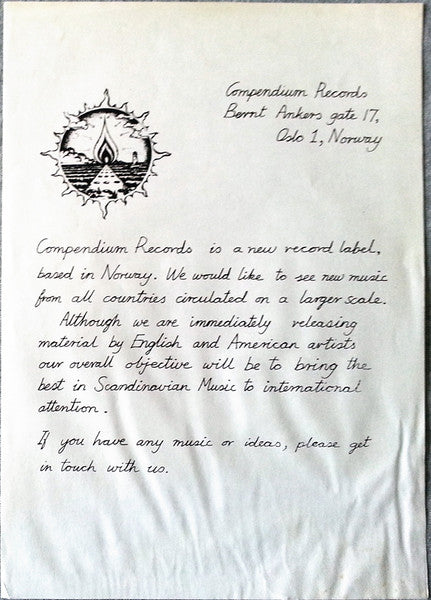 Compendium Records
Bernt Ankers gate 17,
Oslo 1, Norway
Compendium Records is a new record label,
based in Norway. We would like to see new music
from all countries circulated on a larger scale.
Although we are immediately releasing
material by English and American artists
our overall objective will be to bring the
best in Scandinavian Music to international
attention.
If you have any music or ideas, please get
in touch with us.